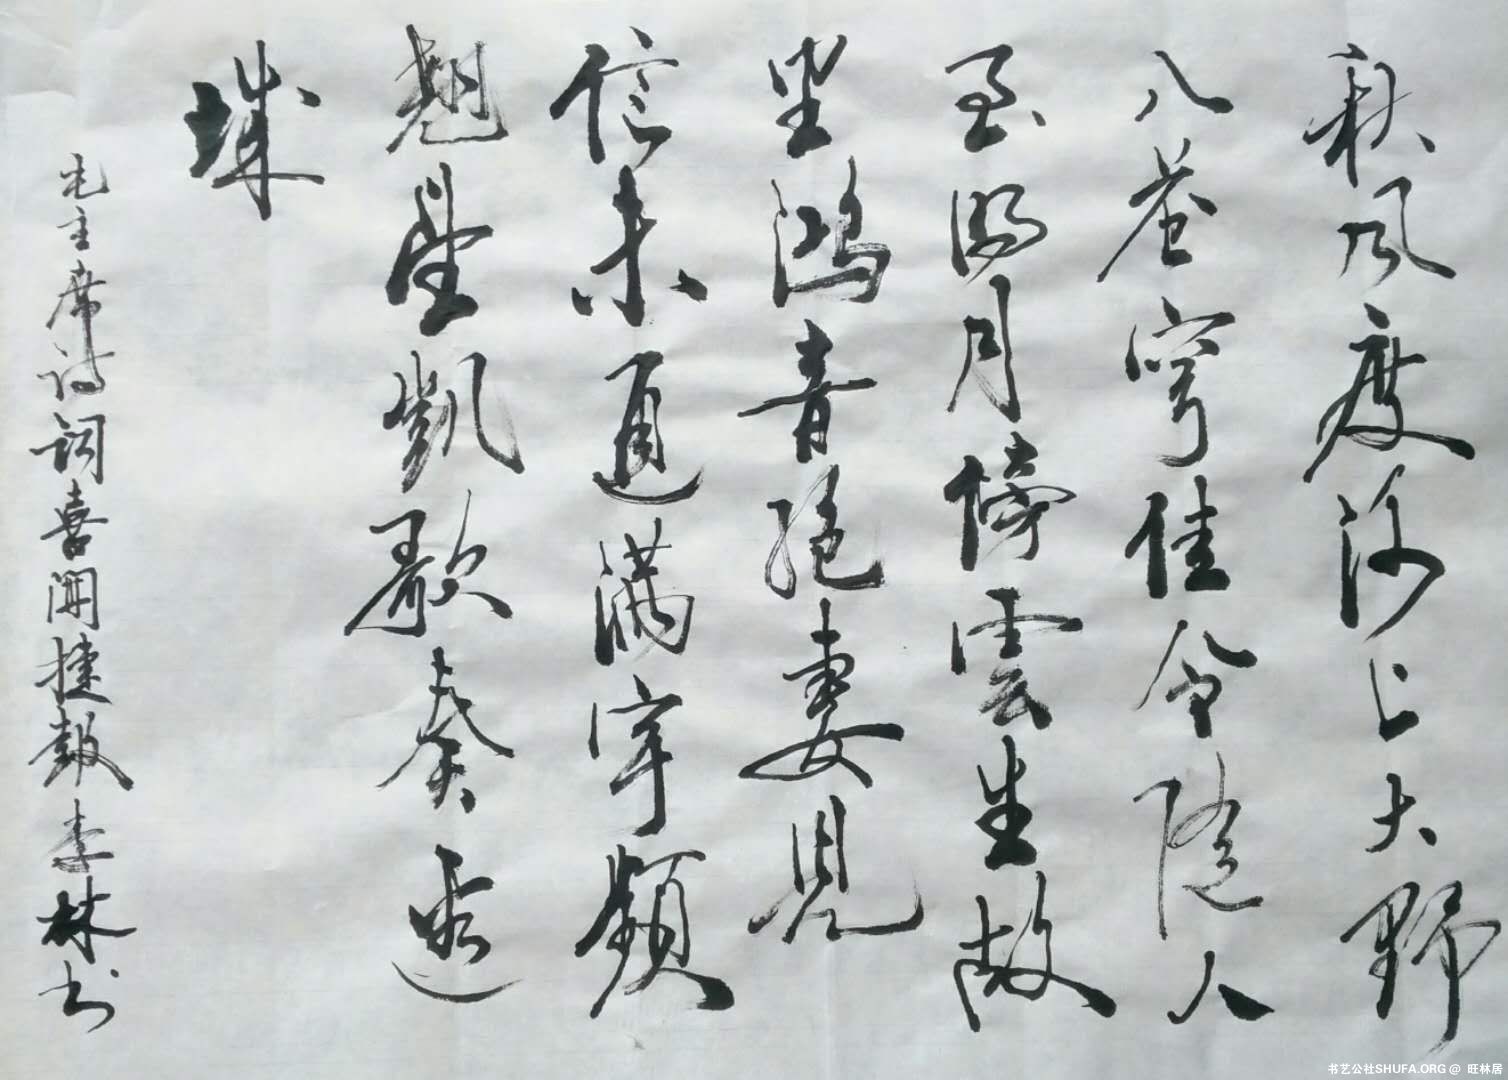 秋风度河上大野
入苍穹佳令随人
至明月傍雲生故
里鸿音绝妻兒
信未通满宇頻
翘望凯歌奏边
城
毛主席诗词喜聞捷報李林书
书艺公社SHUFA.ORG @ 旺林居